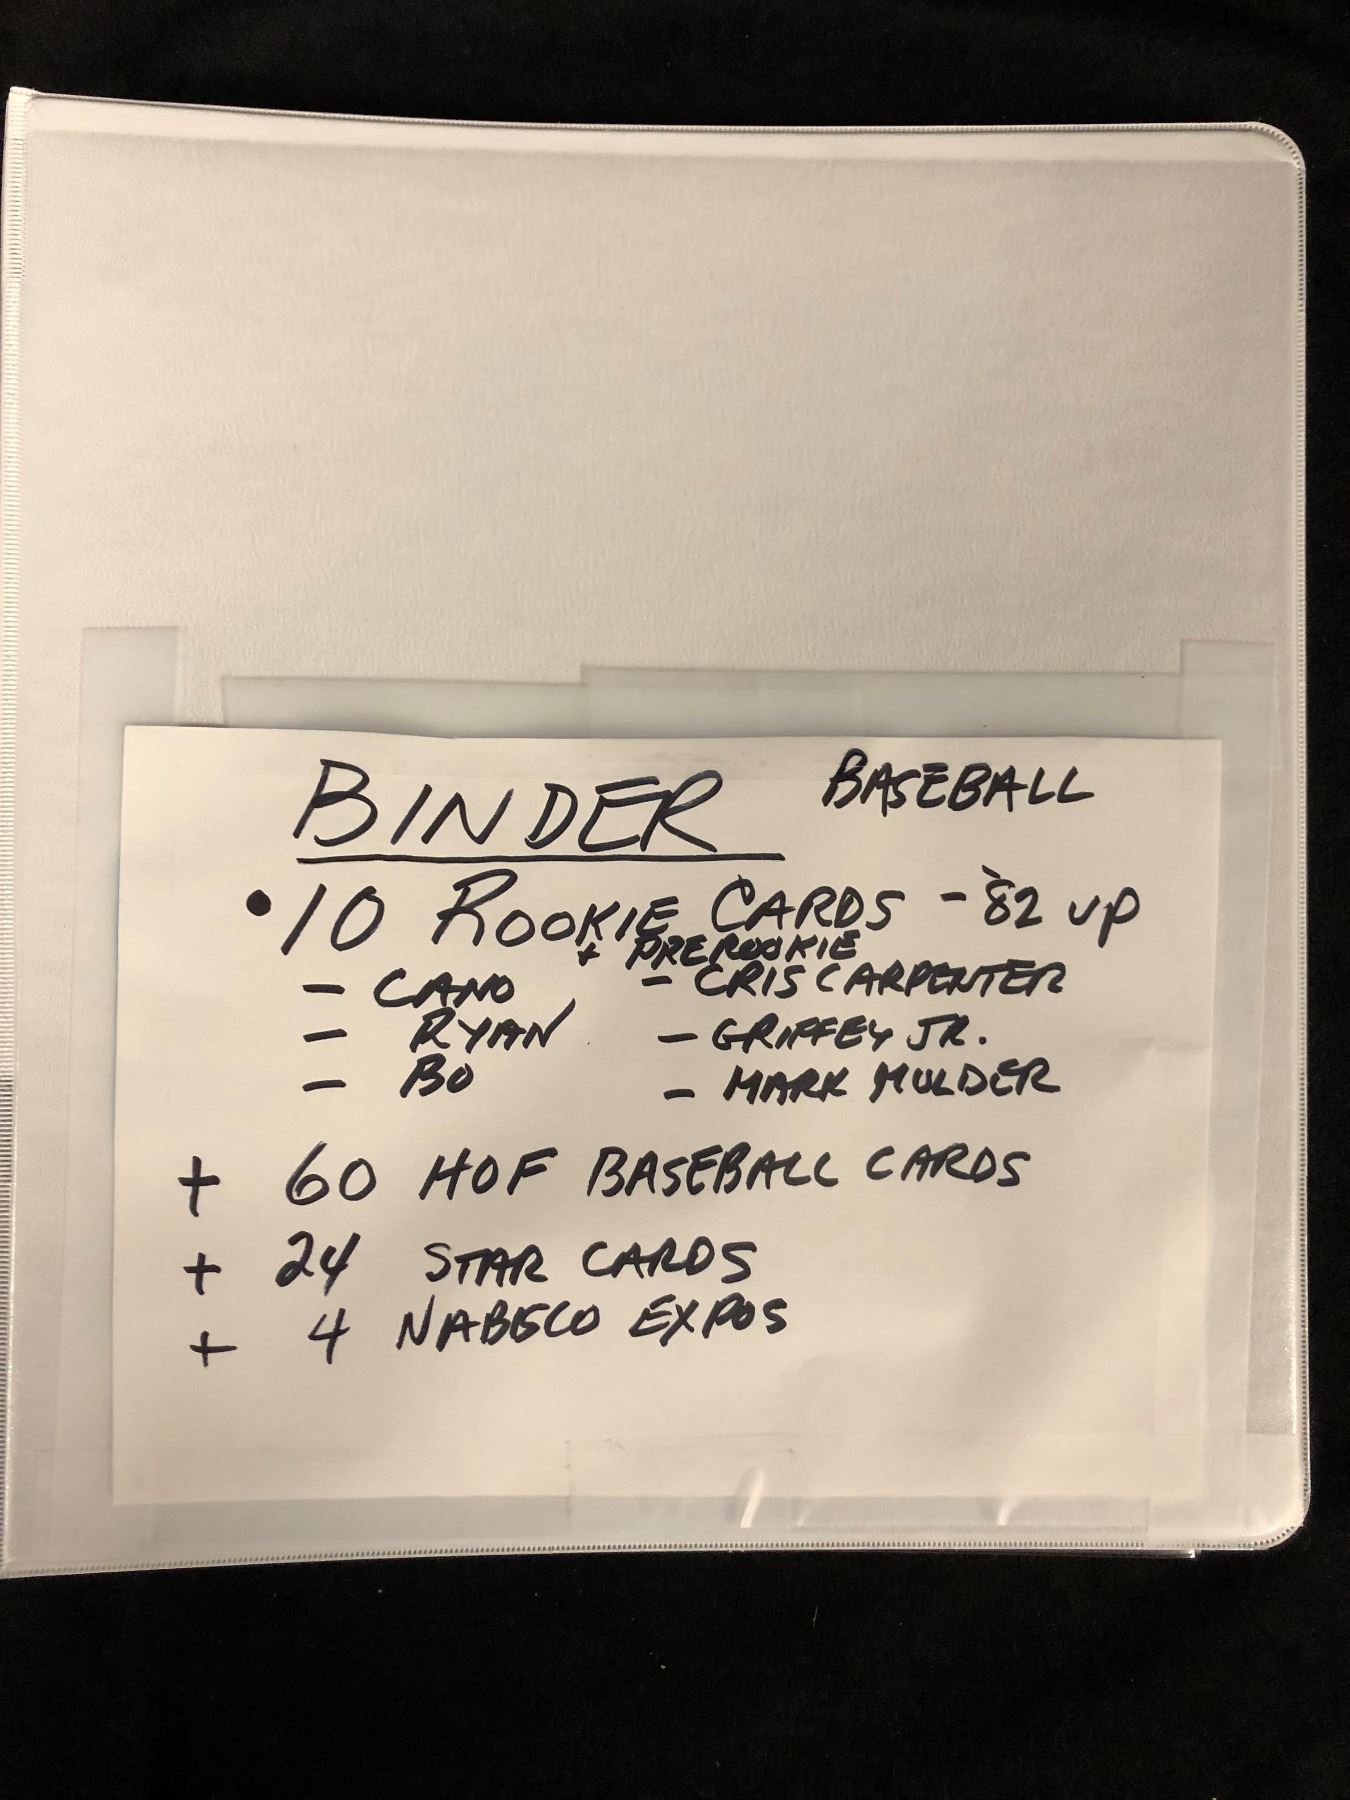 BINDER BASEBALL
• 10 ROOKIE CARDS - '82 UP
+ PREROOKIE
- CANO - CRIS CARPENTER
- RYAN - GRIFFEY JR.
- BO - MARK MULDER
+ 60 HOF BASEBALL CARDS
+ 24 STAR CARDS
+ 4 NABISCO EXPOS